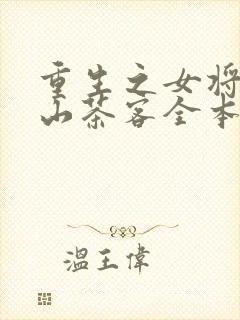 重生之女将
山茶客全本
温王伟